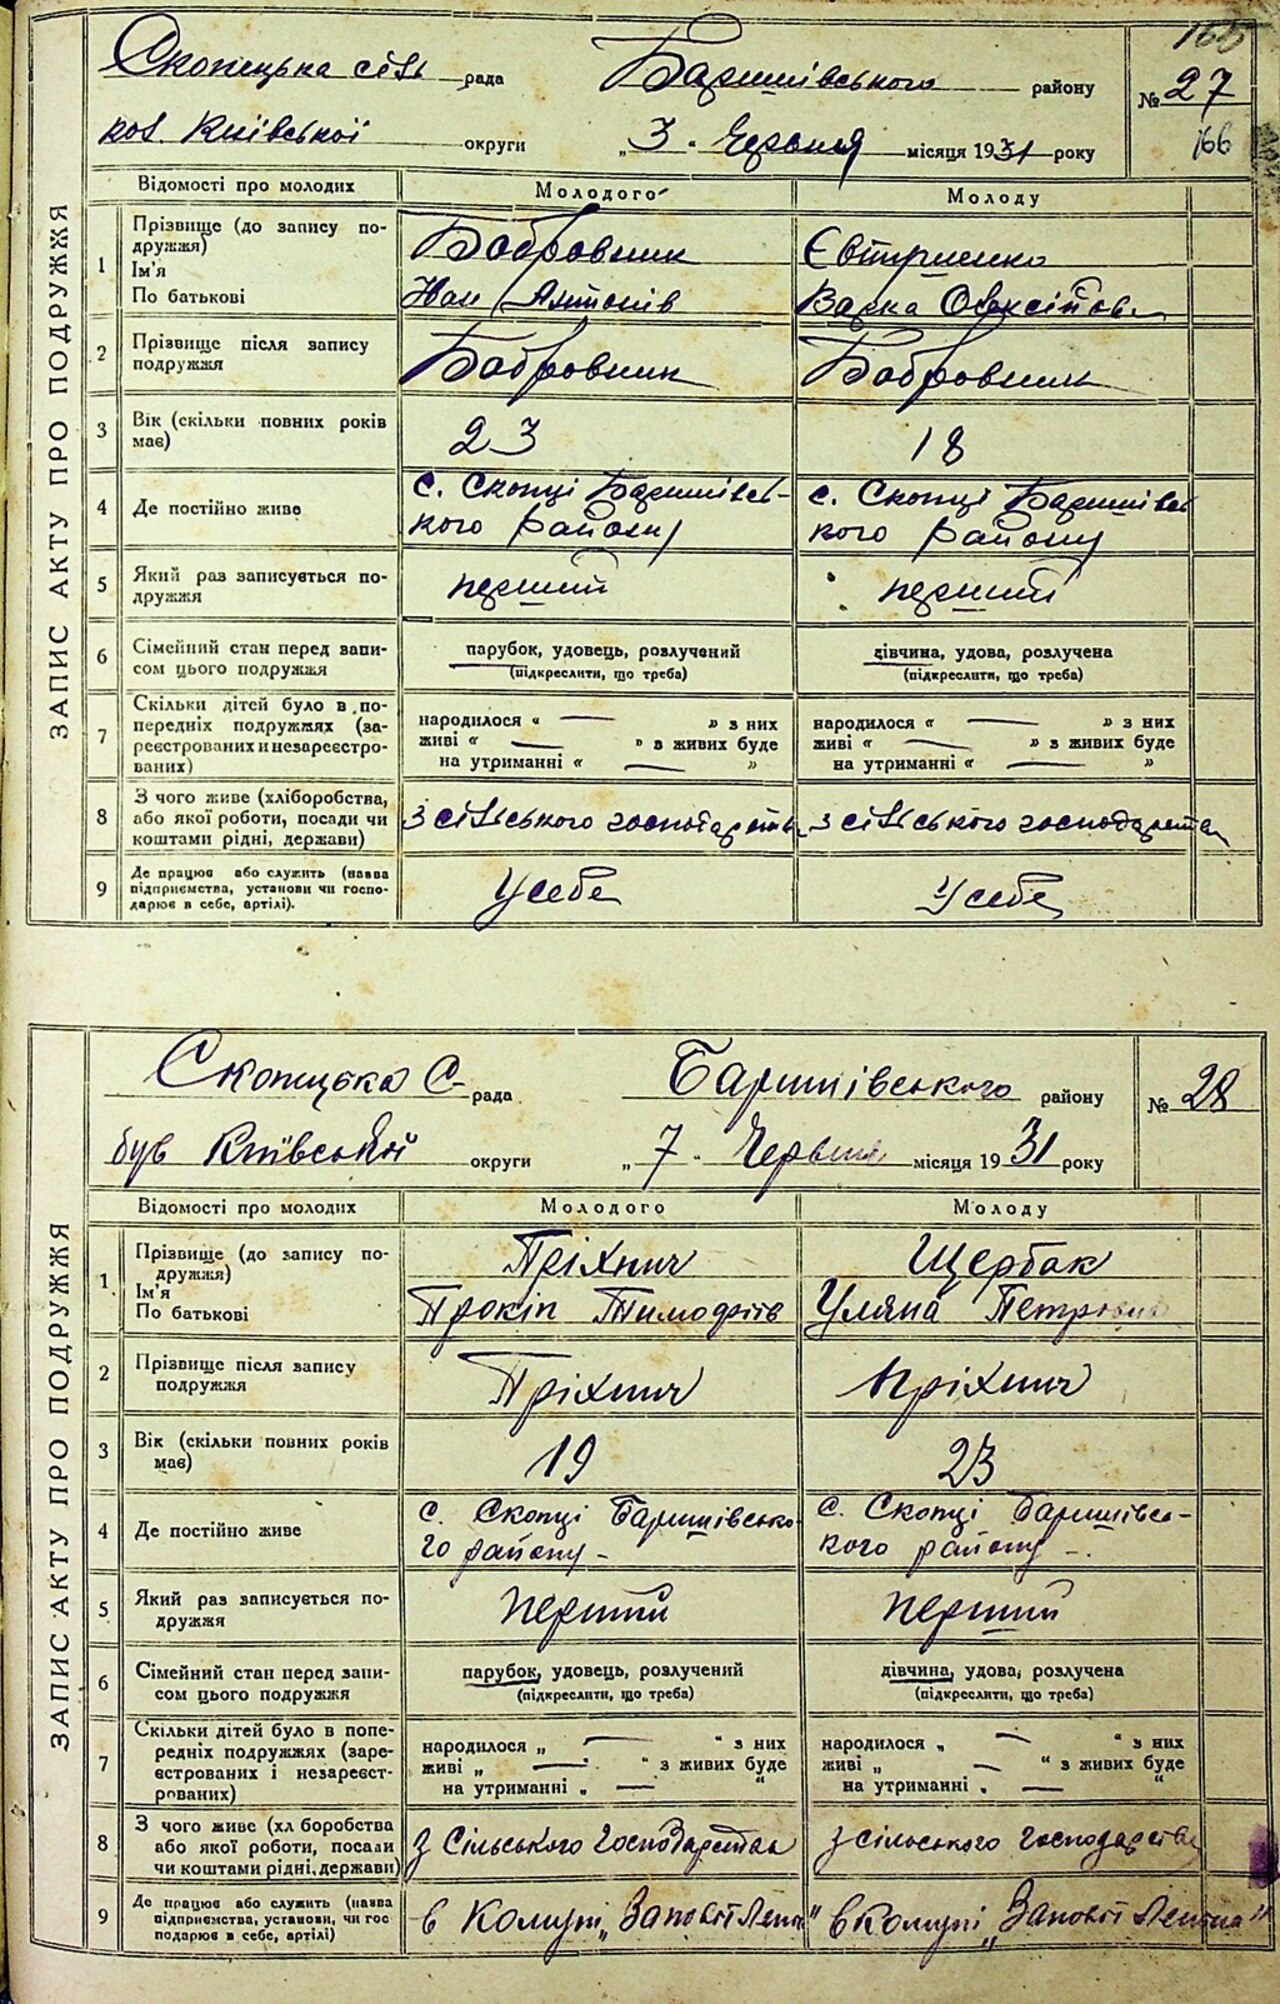 165
Скопецька сільрада Баришівського району № 27
кол. Київської округи „3“ Червня місяця 1931 року 166
ЗАПИС АКТУ ПРО ПОДРУЖЖЯ
Відомості про молодих Молодого Молоду
1 Прізвище (до запису по-
дружжя) Бобровник Євтушенко
Ім'я
По батькові Іван Антонів Варка Олексіївн
2 Прізвище після запису
подружжя Бобровник Бобровник
3 Вік (скільки повних років
має) 23 18
4 Де постійно живе с. Скопці Баришівсь- с. Скопці Баришівсь
кого району кого району
5 Який раз записується по-
дружжя перший перший
6 Сімейний стан перед запи- парубок, удовець, розлучений дівчина, удова, розлучена
сом цього подружжя (підкреслити, що треба) (підкреслити, що треба)
7 Скільки дітей було в по-
передніх подружжях (за- народилося « — » з них народилося « — » з них
реєстрованих и незареєстро- живі « — » з живих буде живі « — » з живих буде
ваних) на утриманні « — » на утриманні « — »
8 З чого живе (хліборобства,
або якої роботи, посади чи З сільського господарства з сільського господарства
коштами рідні, держави)
9 Де працює або служить (назва
підприємства, установи чи госпо- У себе У себе
дарює в себе, артілі).
Скопецька С. рада Баришівського району № 28
був Київської округи „7“ Червня місяця 1931 року
ЗАПИС АКТУ ПРО ПОДРУЖЖЯ
Відомості про молодих Молодого Молоду
1 Прізвище (до запису по-
дружжя) Пріхнич Щербак
Ім'я
По батькові Прокіп Тимофіїв Уляна Петрівна
2 Прізвище після запису
подружжя Пріхнич Пріхнич
3 Вік (скільки повних років
має) 19 23
4 Де постійно живе с. Скопці Баришівсько- с. Скопці Баришівсь-
го району - кого району -.
5 Який раз записується по-
дружжя перший перший
6 Сімейний стан перед запи- парубок, удовець, розлучений дівчина, удова, розлучена
сом цього подружжя (підкреслити, що треба) (підкреслити, що треба)
7 Скільки дітей було в попе-
редніх подружжях (заре- народилося „ — “ з них народилося „ — “ з них
єстрованих і незареєст- живі „ — “ з живих буде живі „ — “ з живих буде
рованих) на утриманні „ — “ на утриманні „ — “
8 З чого живе (хл боробства
або якої роботи, посади З сільського господарства З сільського господарства
чи коштами рідні, держави)
9 Де працює або служить (назва
підприємства, установи, чи гос в Комуні „Заповіт Леніна“ в Комуні „Заповіт Леніна“
подарює в себе, артілі)